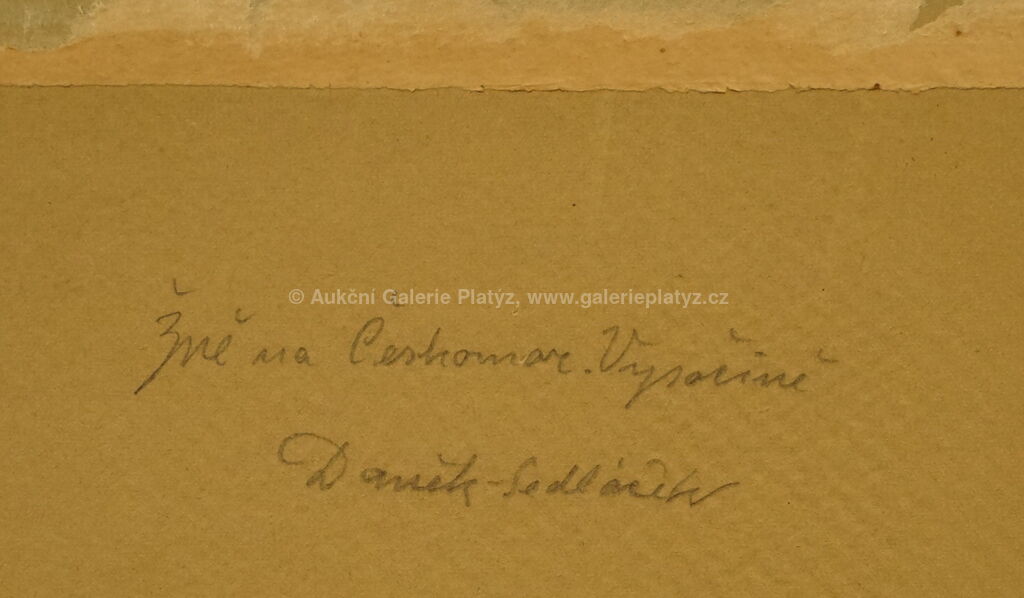 © Aukční Galerie Platýz, www.galerieplatyz.cz
Žně na Českomor. Vysočině
Daněk-Sedláček